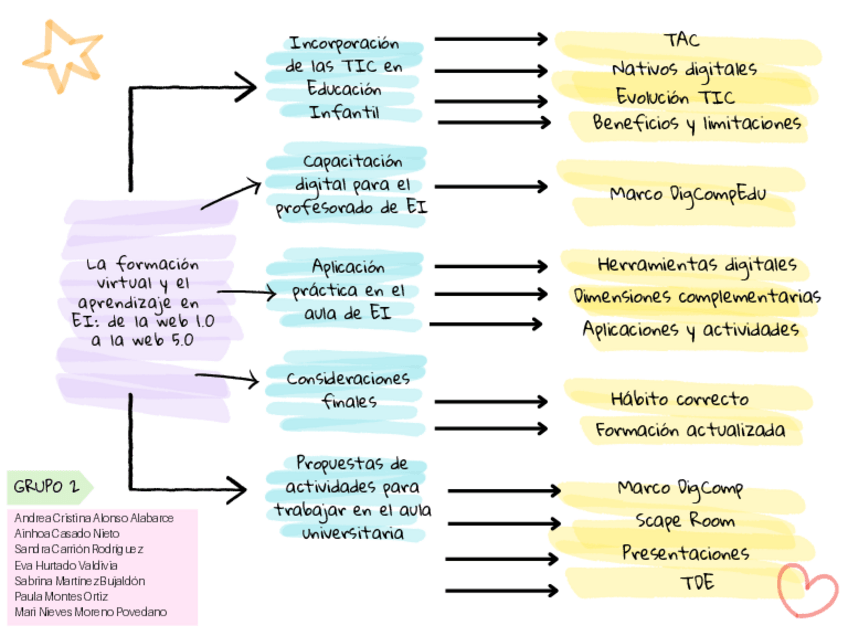 La formación
virtual y el
aprendizaje en
EI: de la web 1.0
a la web 5.0
Incorporación
de las TIC en
Educación
Infantil
TAC
Nativos digitales
Evolución TIC
Beneficios y limitaciones
Capacitación
digital para el
profesorado de EI
Marco DigCompEdu
Aplicación
práctica en el
aula de EI
Herramientas digitales
Dimensiones complementarias
Aplicaciones y actividades
Consideraciones
finales
Hábito correcto
Formación actualizada
Propuestas de
actividades para
trabajar en el aula
universitaria
Marco DigComp
Scape Room
Presentaciones
TDE
GRUPO 2
Andrea Cristina Alonso Alabarce
Ainhoa Casado Nieto
Sandra Carrión Rodríguez
Eva Hurtado Valdivia
Sabrina Martínez Bujaldón
Paula Montes Ortiz
Mari Nieves Moreno Povedano